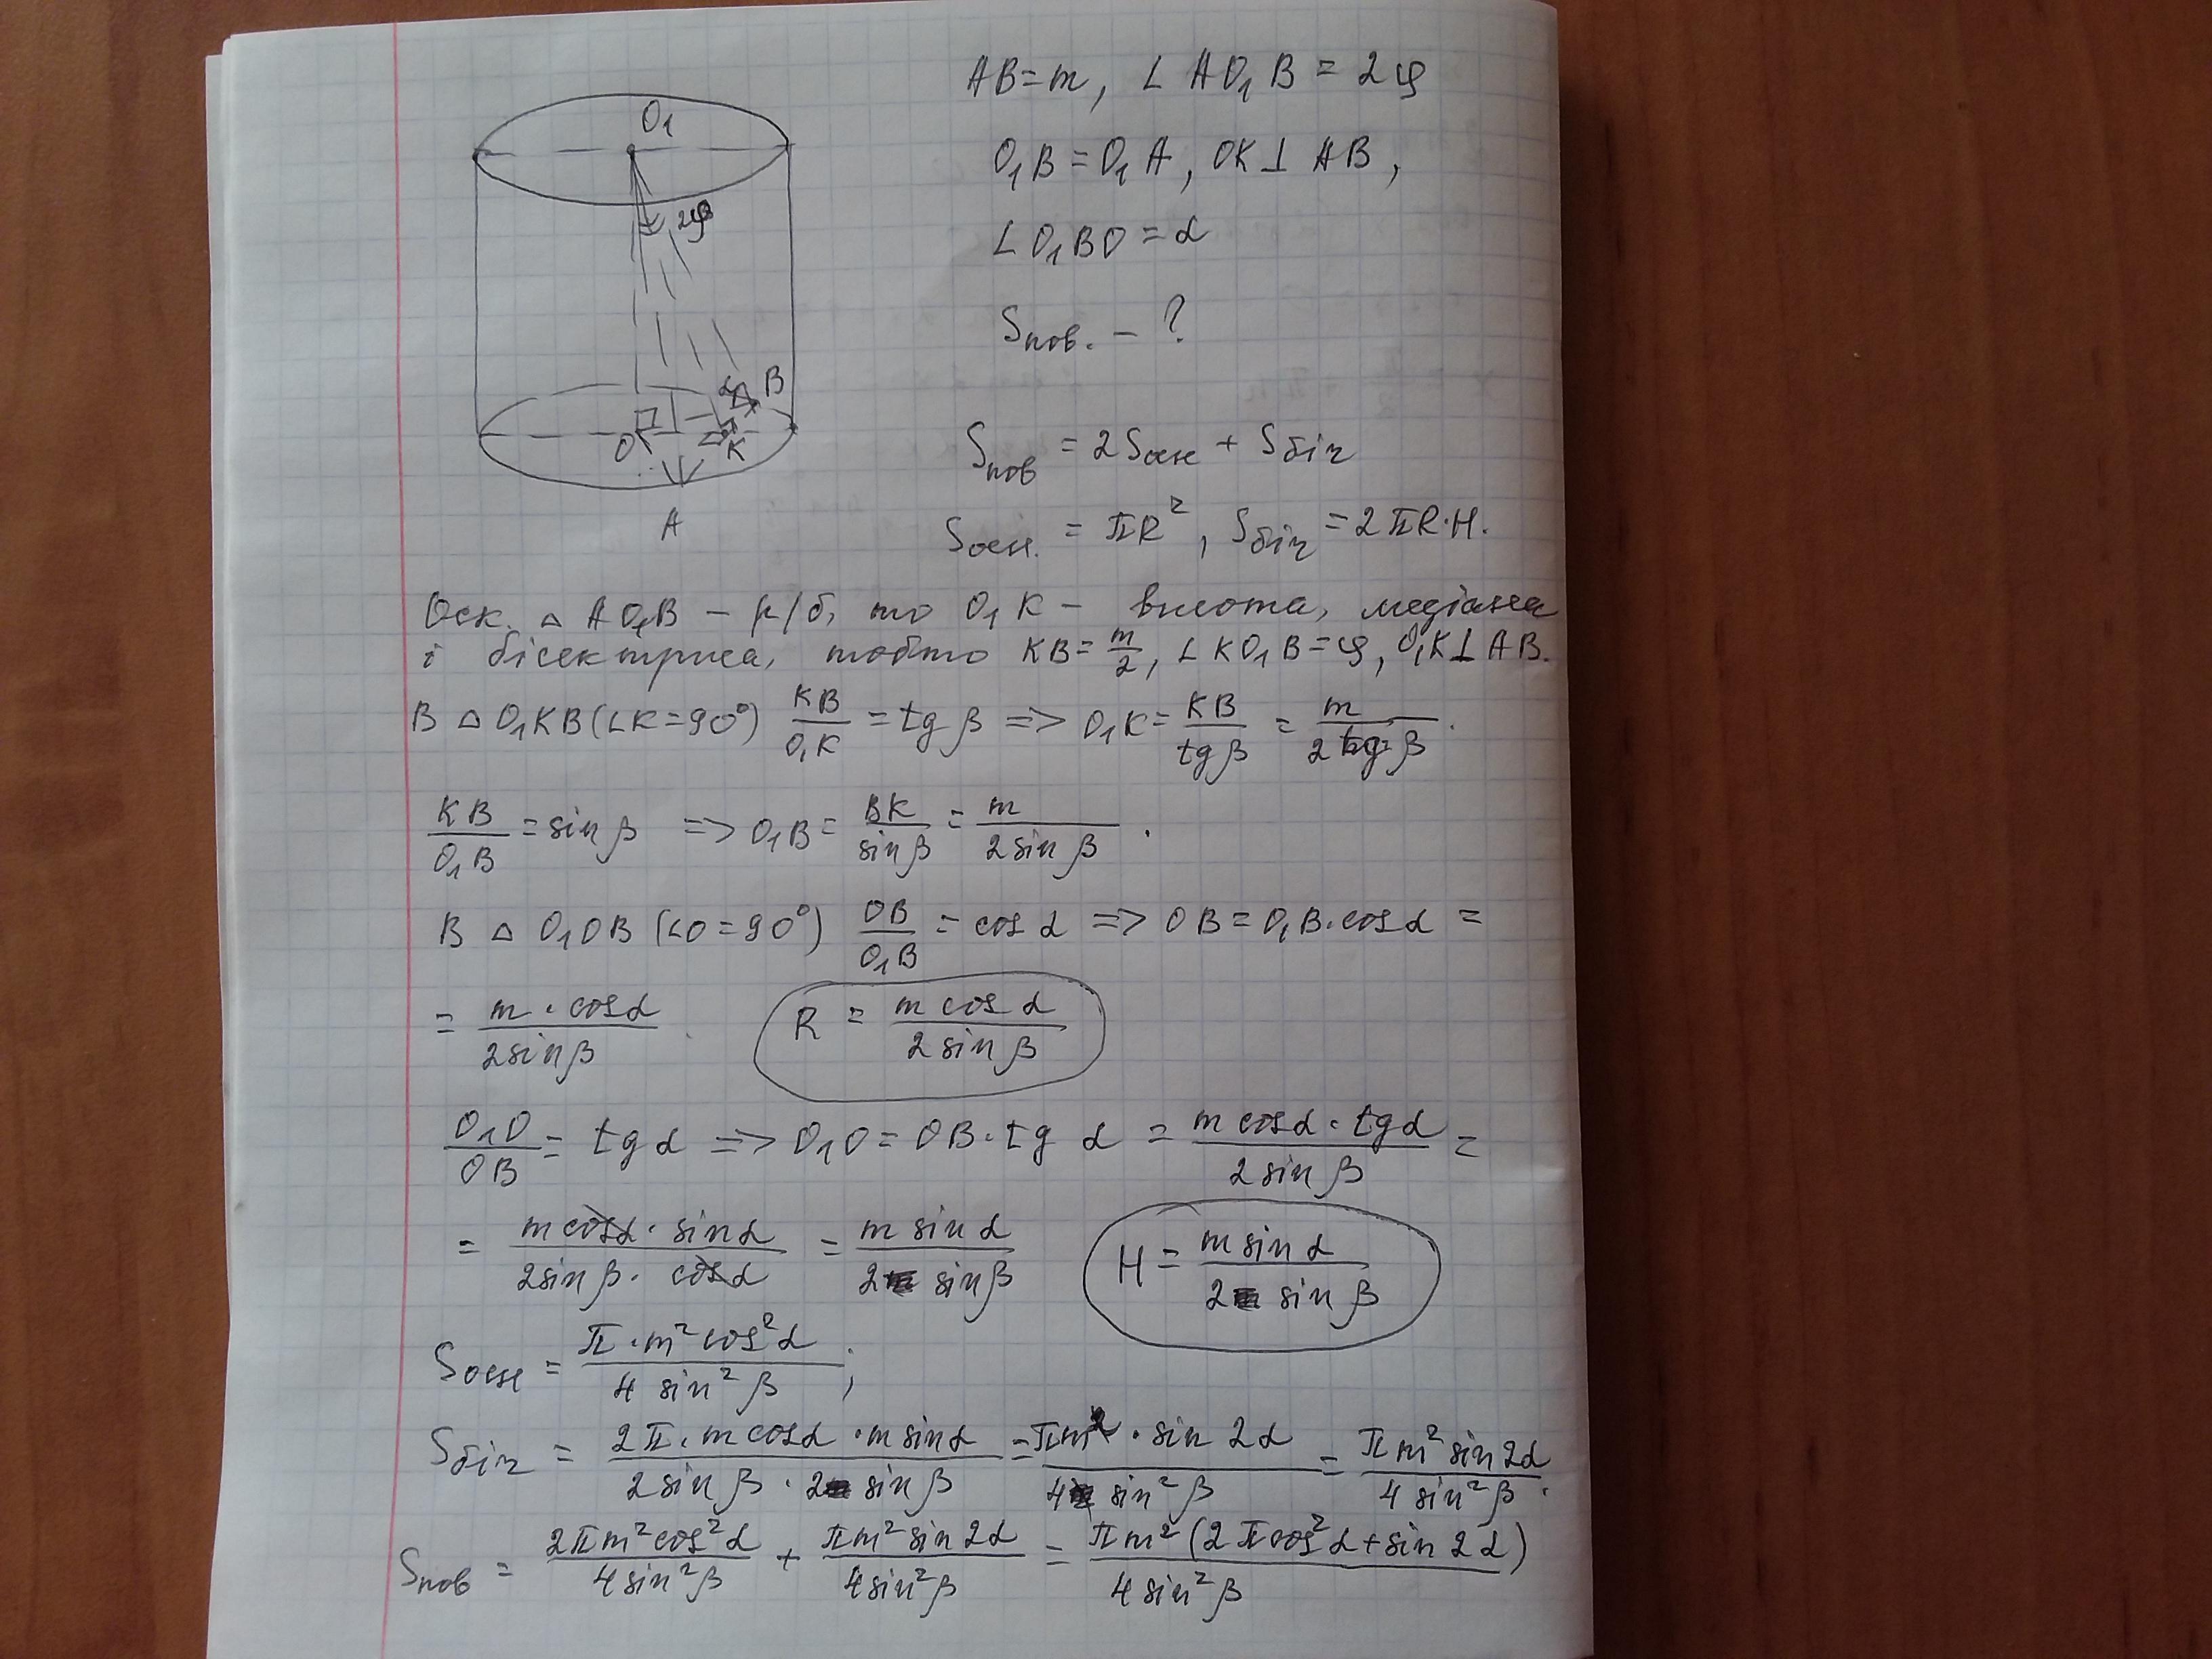 AB=m, ∠AO₁B = 2φ
O₁B = O₁A, OK⊥AB,
∠O₁BO = α
Sпов. – ?
O₁
2φ
α
B
O
K
A
Sпов = 2Sосн + Sбіч
Sосн. = πR², Sбіч = 2πR·H.
Оск. △AO₁B – р/б, то O₁K – висота, медіана
і бісектриса, тобто KB = m/2, ∠KO₁B = φ, O₁K⊥AB.
В △O₁KB (∠K=90°) KB/O₁K = tg β => O₁K = KB/tg β = m/2tg β.
KB/O₁B = sin β => O₁B = BK/sin β = m/2sin β.
В △O₁OB (∠O=90°) OB/O₁B = cos α => OB = O₁B·cos α =
= m·cos α/2sin β R = m cos α/2 sin β
O₁O/OB = tg α => O₁O = OB·tg α = m cos α·tg α/2 sin β =
= m cos α·sin α/2sin β·cos α = m sin α/2 sin β H = m sin α/2 sin β
Sосн = π·m² cos² α/4 sin² β;
Sбіч = 2π·m cos α·m sin α/2 sin β·2 sin β = πm²·sin 2α/4 sin² β = πm² sin 2α/4 sin² β.
Sпов = 2πm² cos² α/4 sin² β + πm² sin 2α/4 sin² β = πm² (2πcos² α + sin 2α)/4 sin² β